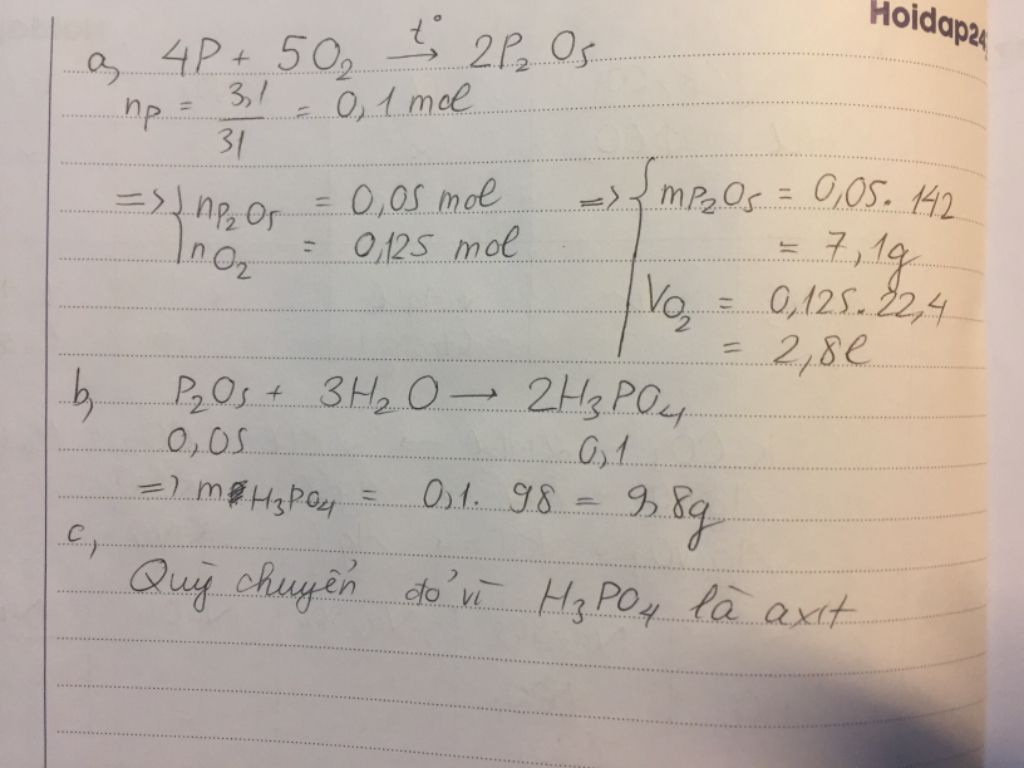 Hoidap24
a, 4P + 5O₂ t°→ 2P₂O₅
nP = 3,1/31 = 0,1 mol
=> { nP₂O₅ = 0,05 mol => { mP₂O₅ = 0,05. 142
nO₂ = 0,125 mol = 7,1g
VO₂ = 0,125. 22,4
= 2,8l
b, P₂O₅ + 3H₂O → 2H₃PO₄
0,05 0,1
=> mH₃PO₄ = 0,1. 98 = 9,8g
c,
Quỳ chuyển đỏ vì H₃PO₄ là axit